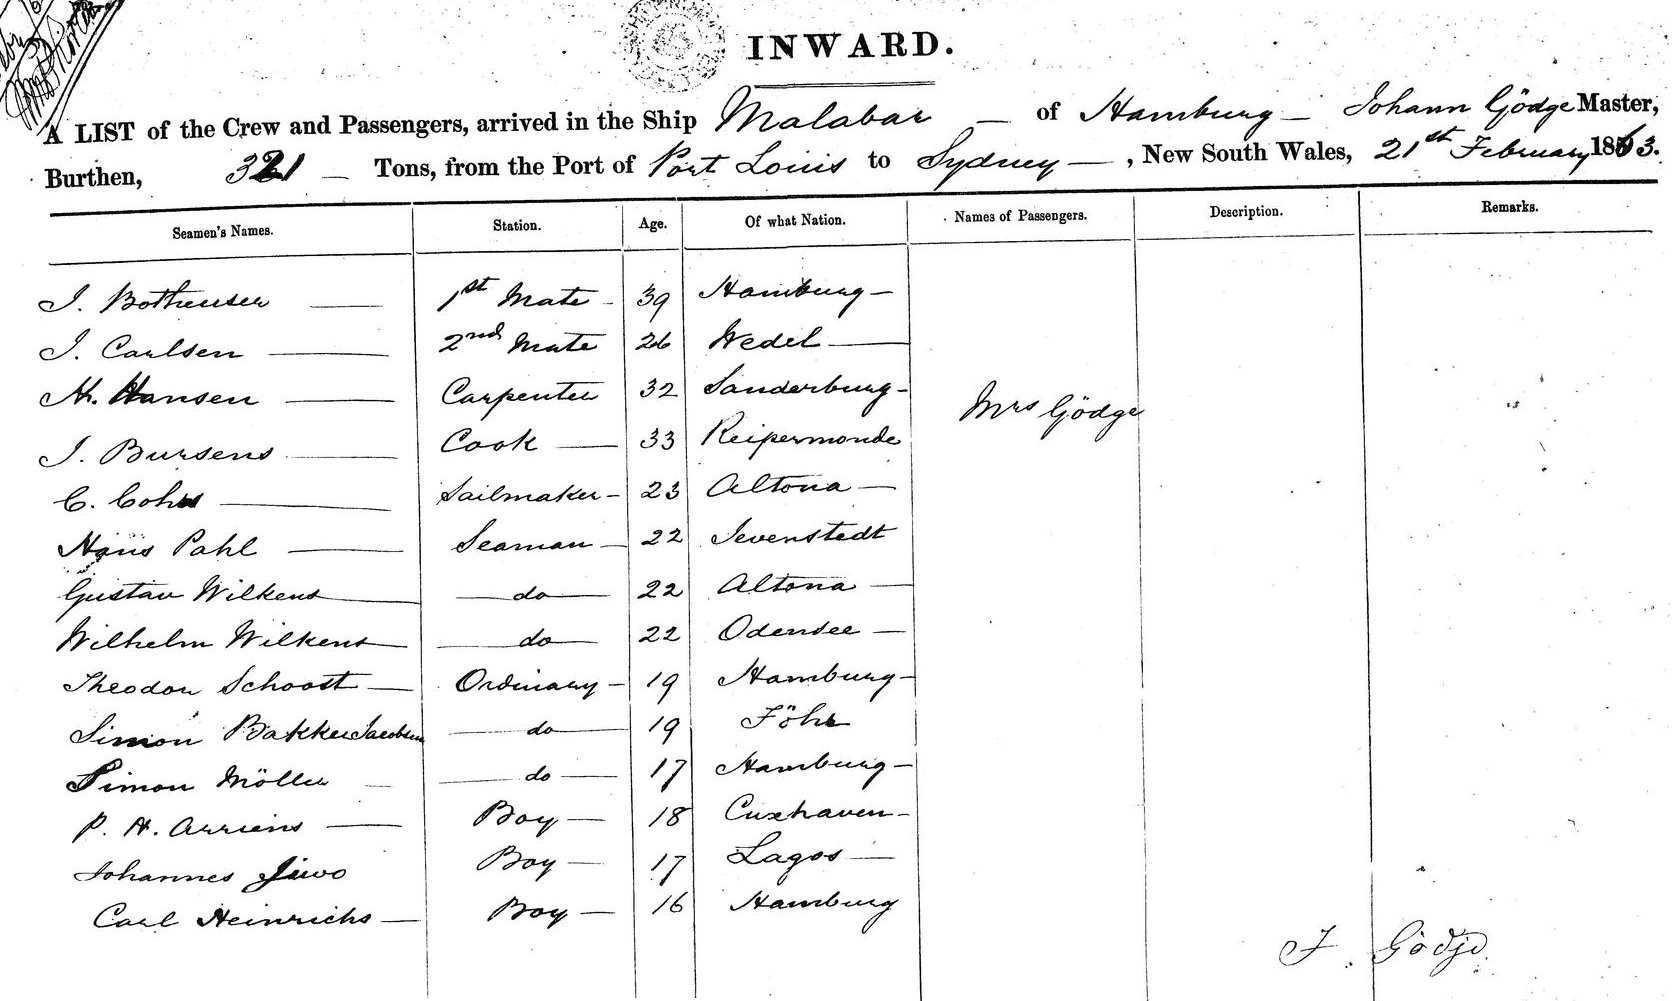 INWARD.
A LIST of the Crew and Passengers, arrived in the Ship Malabar — of Hamburg — Johann Gödge Master,
Burthen, 321 — Tons, from the Port of Port Louis to Sydney —, New South Wales, 21st February 1863.
Seamen's Names. Station. Age. Of what Nation. Names of Passengers. Description. Remarks.
J. — 1st Mate — 39 Hamburg —
J. Carlsen — 2nd Mate 26 Wedel —
Hansen — Carpenter 32 Sanderburg —
J. Bursens — Cook — 33 Reipermonde
Mrs Gödge
C. Cohrs — Sailmaker — 23 Altona —
Hans Pahl — Seaman — 22 Jevenstedt
Gustav Wilkens — do — 22 Altona —
Wilhelm Wilkens — do — 22 Odensee —
Theodor Schoost — Ordinary — 19 Hamburg —
Simon Bakker Jacobsen — do — 19 Föhr
Simon Möller — do — 17 Hamburg —
P. H. Arriens — Boy — 18 Cuxhaven —
Johannes Boy — 17 Lagos —
Carl Heinrichs — Boy — 16 Hamburg
J. Gödge